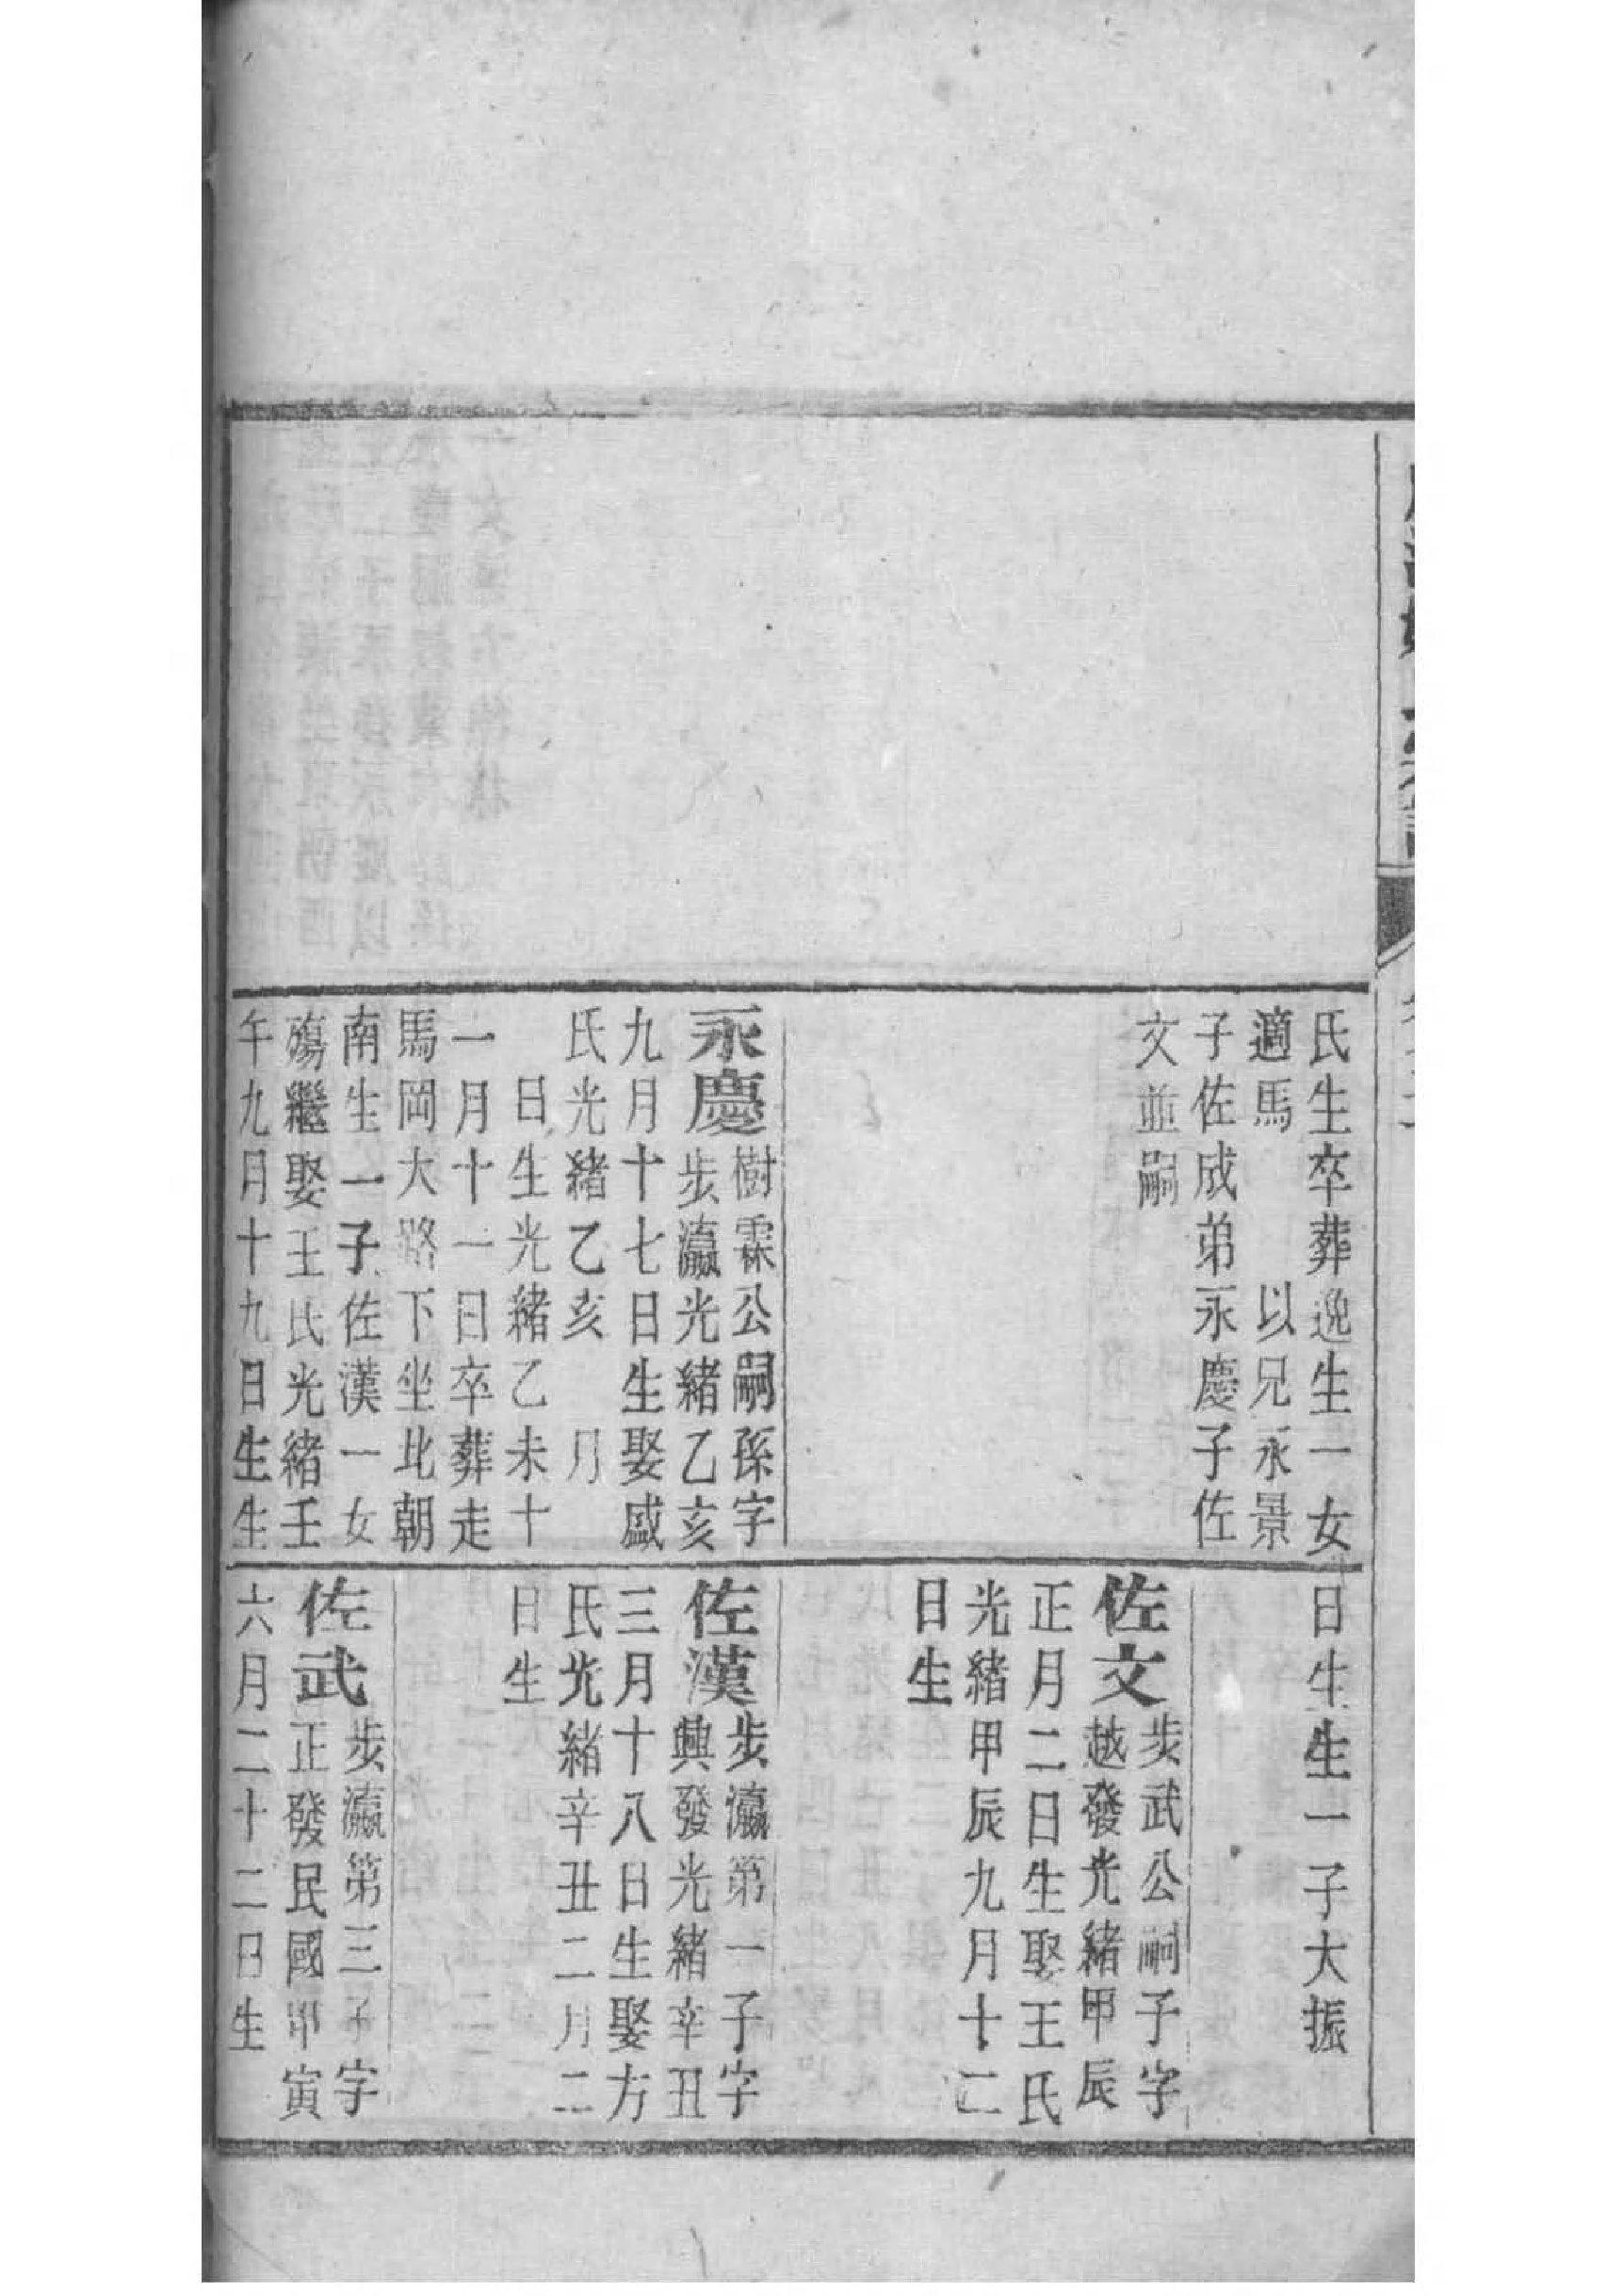 氏生卒葬逸生一女
適馬 以兄永景
子佐成弟永慶子佐
文並嗣
永慶樹霖公嗣孫字
步瀛光緒乙亥
九月十七日生娶盛
氏光緒乙亥 月
日生光緒乙未十
一月十一日卒葬走
馬岡大路下坐北朝
南生一子佐漢一女
殤繼娶王氏光緒壬
午九月十九日生生
日生生一子大振
佐文步武公嗣子字
越發光緒甲辰
正月二日生娶王氏
光緒甲辰九月十二
日生
佐漢步瀛第一子字
興發光緒辛丑
三月十八日生娶方
氏光緒辛丑二月二
日生
佐武步瀛第三子字
正發民國甲寅
六月二十二日生